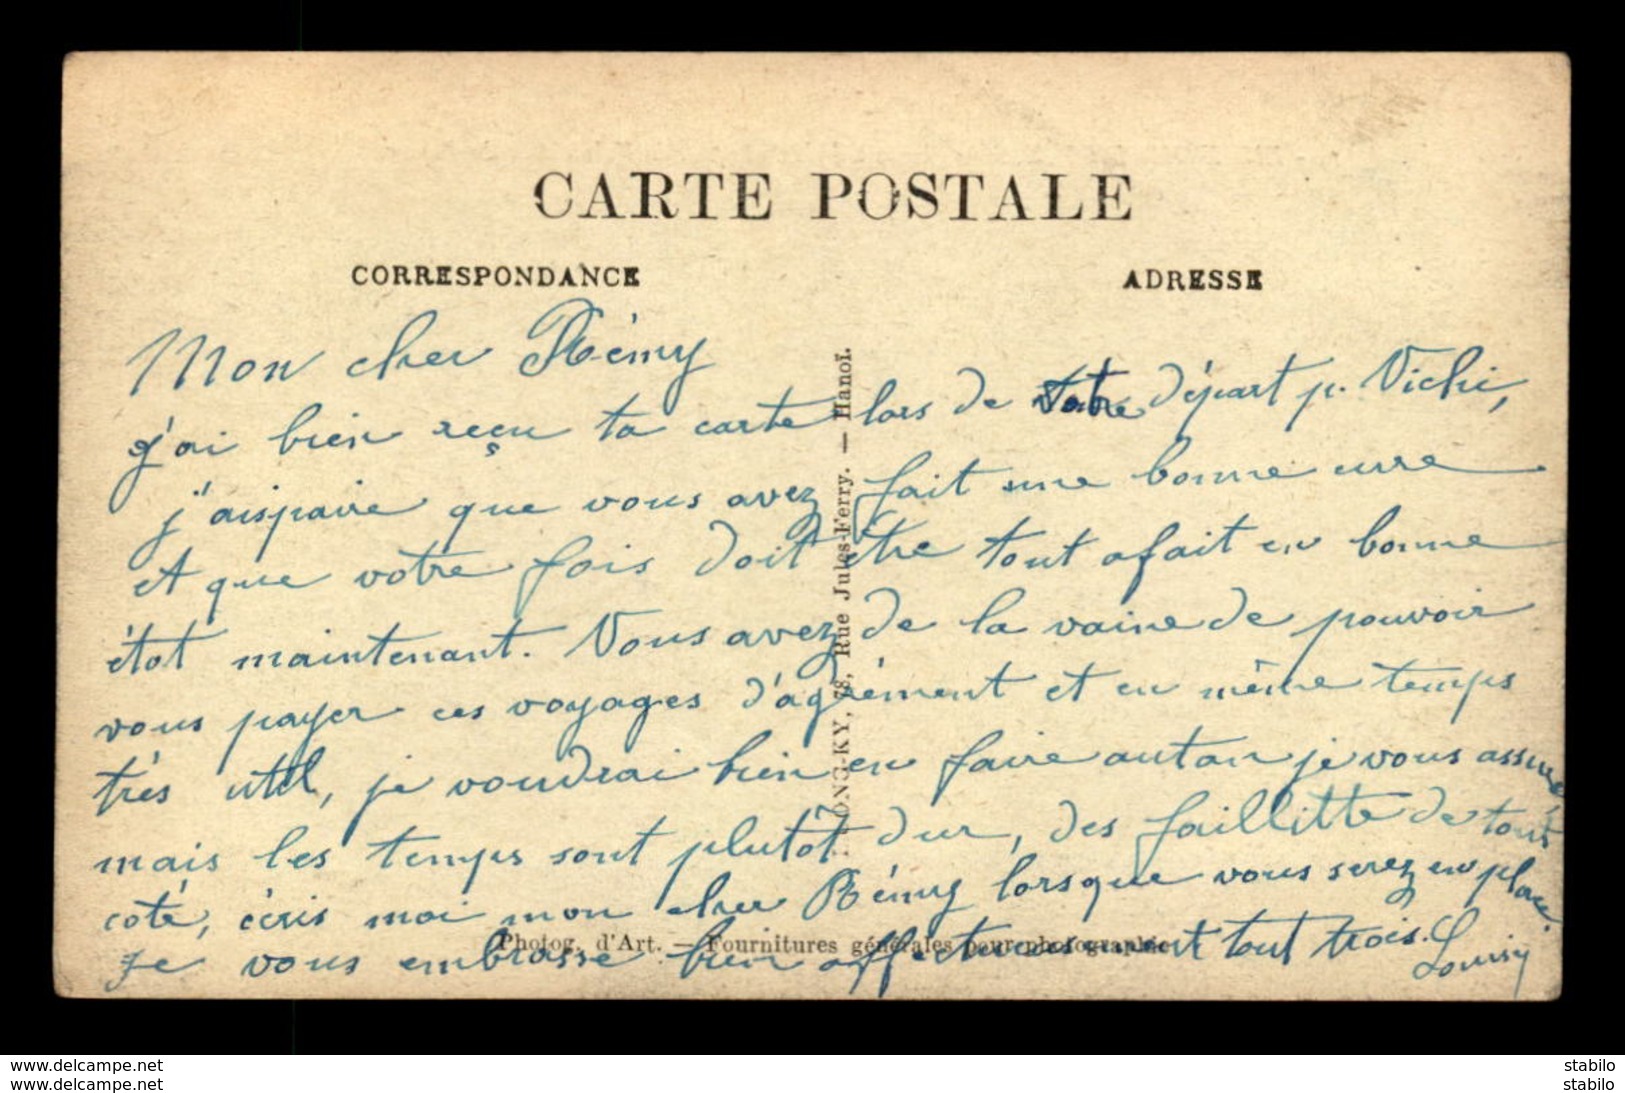 CARTE POSTALE
CORRESPONDANCE
ADRESSE
Mon cher Rémy
j'ai bien reçu ta carte lors de votre départ p. Vichi,
j'aispaire que vous avez fait une bonne curre
et que votre fois doit être tout afait en bonne
étot maintenant. Vous avez de la vaine de pouvoir
vous payer ces voyages d'agrément et en même temps
très util, je voudrai bien en faire autan je vous assure
mais les temps sont plutôt dur, des faillitte de tout
coté, écris moi mon cher Rémy lorsque vous serez en place.
Je vous embrasse bien affectueusement tout trois.
Louisy
HONG-KY, 78, Rue Jules-Ferry. — Hanoï.
Photog. d'Art. — Fournitures générales pour photographie
stabilo
stabilo
stabilo
stabilo